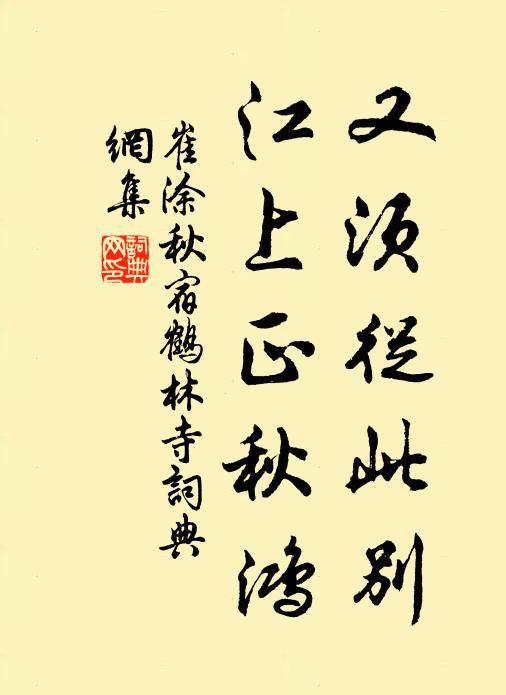 又須從此別
江上正秋鴻
崔涂秋宿鶴林寺詞典
網集
詞典
网印